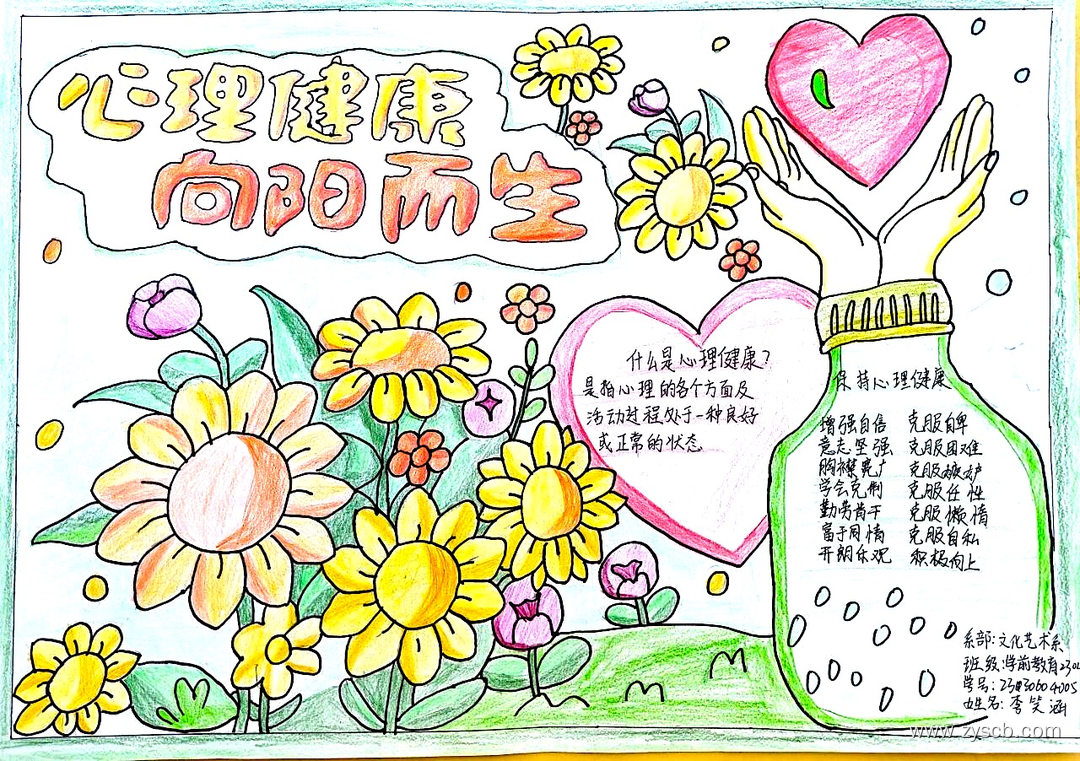 心理健康
向阳而生
什么是心理健康?
是指心理的各个方面及
活动过程处于一种良好
或正常的状态
保持心理健康
增强自信 克服自卑
意志坚强 克服困难
胸襟宽广 克服嫉妒
学会克制 克服任性
勤劳肯干 克服懒惰
富于同情 克服自私
开朗乐观 积极向上
系部:文化艺术系
班级:学前教育230
学号:
姓名:李笑涵
www.zyscb.com